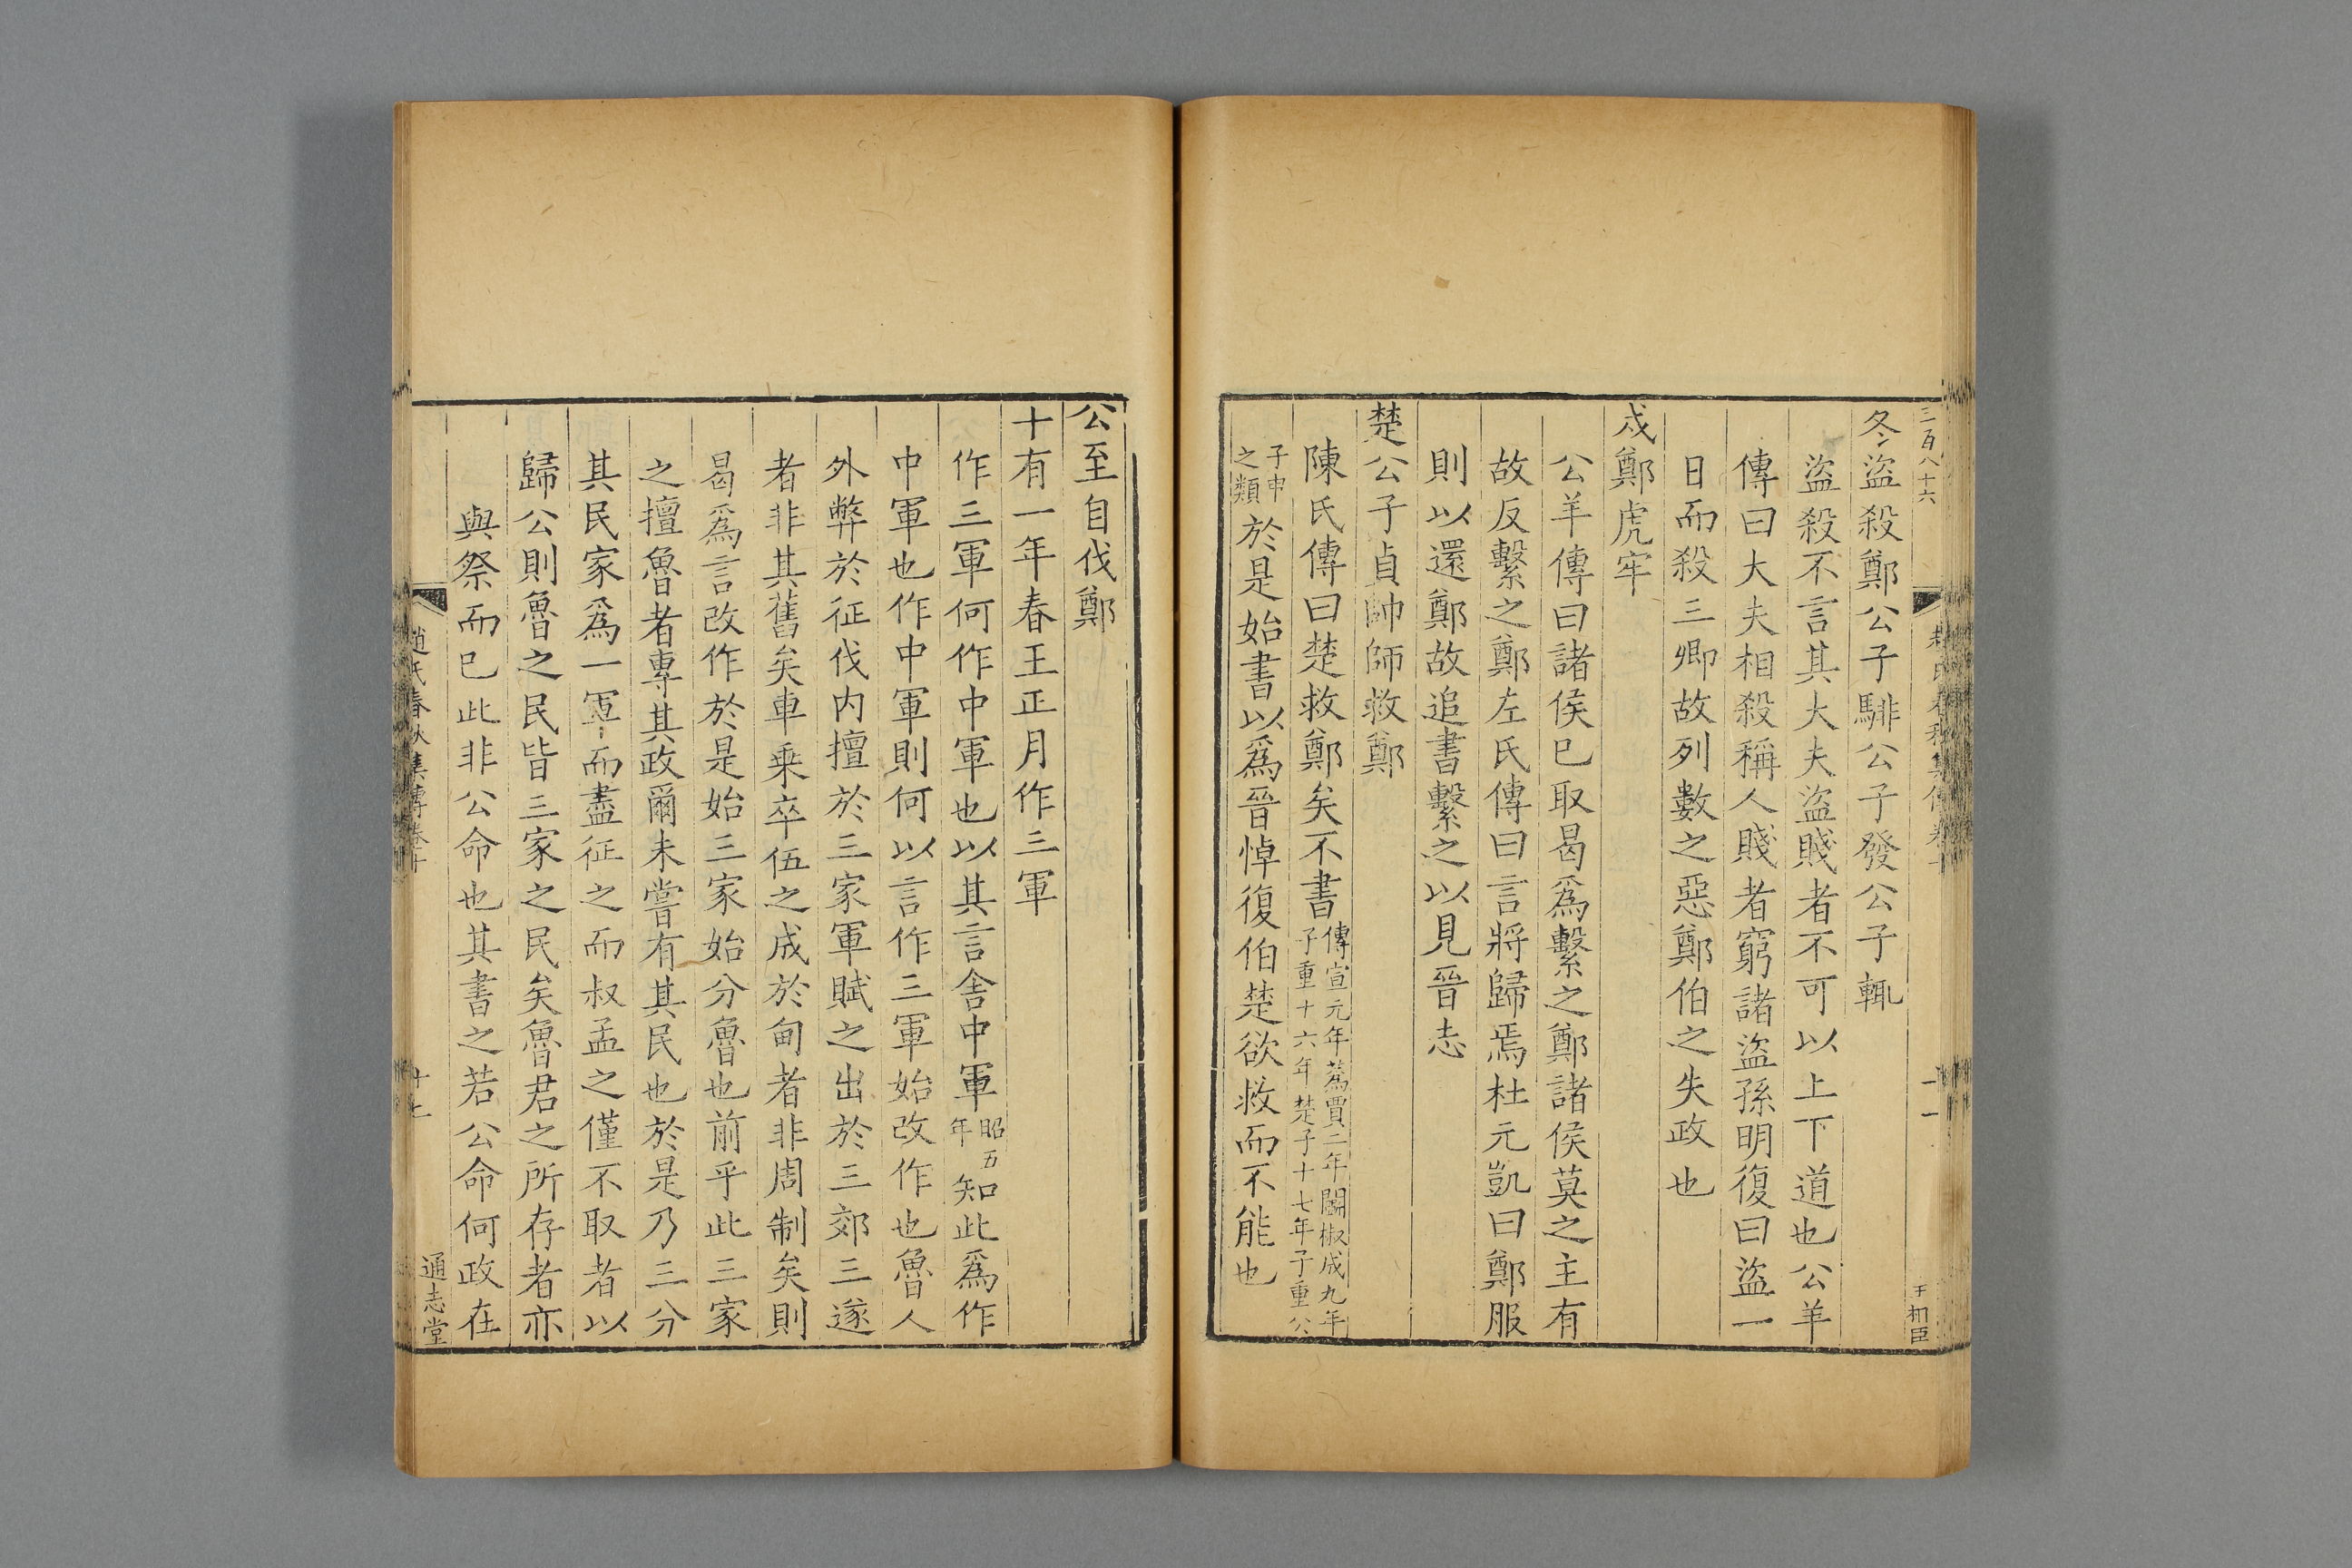 三百八十六
冬盜殺鄭公子騑公子發公子輒
盜殺不言其大夫盜賤者不可以上下道也公羊
傳曰大夫相殺稱人賤者窮諸盜孫明復曰盜一
日而殺三卿故列數之惡鄭伯之失政也
戍鄭虎牢
公羊傳曰諸侯已取曷爲繫之鄭諸侯莫之主有
故反繫之鄭左氏傳曰言將歸焉杜元凱曰鄭服
則以還鄭故追書繫之以見晉志
楚公子貞帥師救鄭
陳氏傳曰楚救鄭矣不書傳宣元年蒍賈二年鬭椒成九年
子重十六年楚子十七年子重公
子申
之類於是始書以爲晉悼復伯楚欲救而不能也
公至自伐鄭
十有一年春王正月作三軍
作三軍何作中軍也以其言舍中軍昭五
年知此爲作
中軍也作中軍則何以言作三軍始改作也魯人
外弊於征伐内擅於三家軍賦之出於三郊三遂
者非其舊矣車乗卒伍之成於甸者非周制矣則
曷爲言改作於是始三家始分魯也前乎此三家
之擅魯者專其政爾未嘗有其民也於是乃三分
其民家爲一軍而盡征之而叔孟之僅不取者以
歸公則魯之民皆三家之民矣魯君之所存者亦
與祭而已此非公命也其書之若公命何政在
趙氏春秋集傳卷十
十七
通志堂